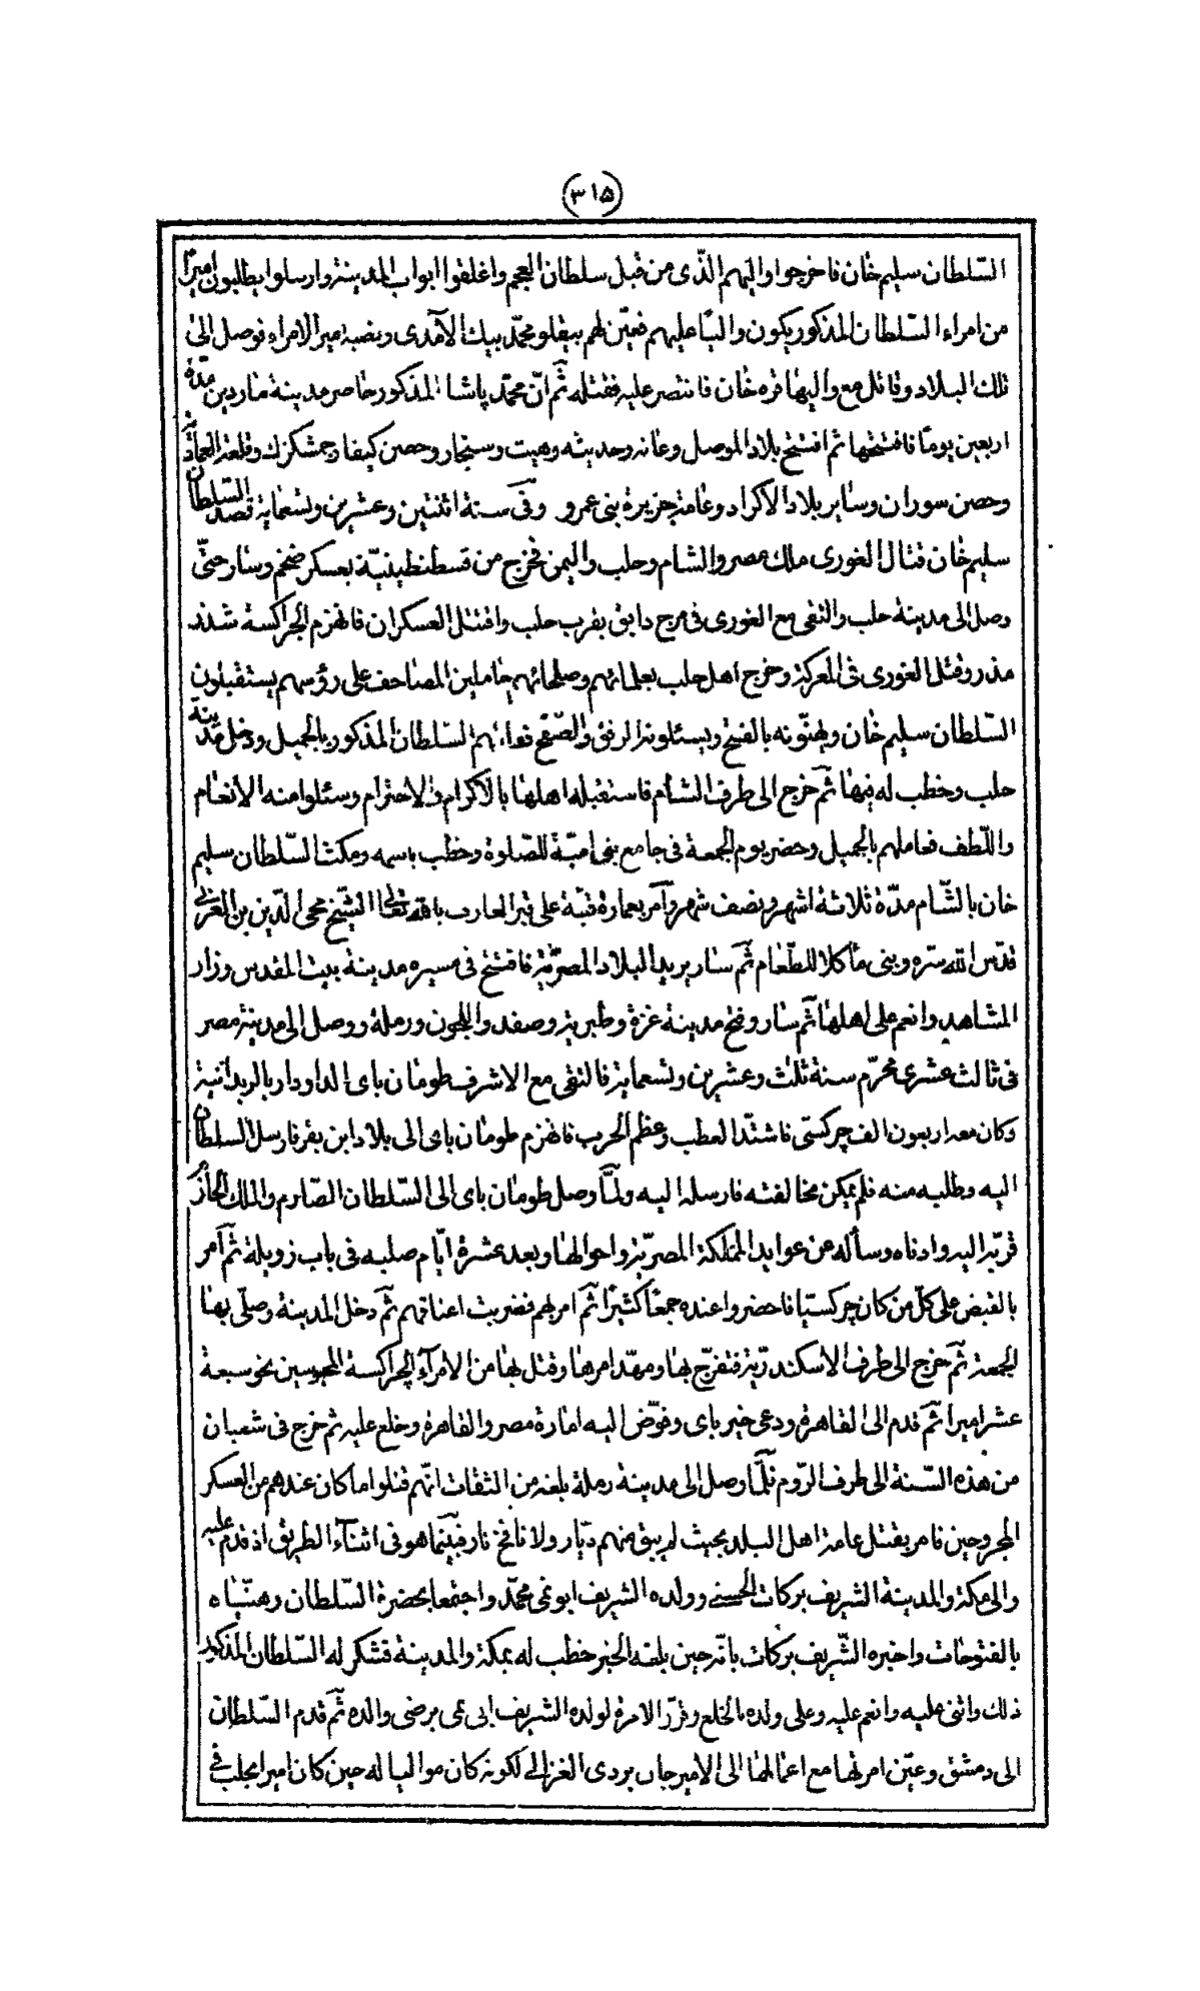 (٣١۵)
السّلطان سليم خان فاخرجوا واليهم الذّى من قبل سلطان العجم واغلقوا ابواب المدينة وارسلوا يطلبون اميرًا
من امراء السّلطان المذكور يكون واليًا عليهم فعيّن لهم بيقلو محمّد بيك الآمدى ونصبه امير الامراء فوصل الىٰ
تلك البلاد وقاتل مع واليها قره خان فانتصر عليه فقتله ثمّ انّ محمّد پاشا المذكور حاصر مدينة ماردين مدّة
اربعين يومًا فافتتحها ثم افتتح بلاد الموصل وعانه وحديثه وهيت وسنجار وحصن كيفا وجمشكزك وقلعة العماديّة
وحصن سوران وساير بلاد الاكراد وعامة جزيرة بنى عمرو وفى سنة اثنتين وعشرين وتسعماية قصد السّلطان
سليم خان قتال الغورى ملك مصر والشام وحلب واليمن فخرج من قسطنطينيّة بعسكر ضخم وسار حتّى
وصل الى مدينة حلب والتقى مع الغورى فى مرج دابق بقرب حلب واقتتل العسكران فانهزم الجراكسة شذر
مذر وقتل الغورى فى المعركة وخرج اهل حلب بعلمائهم وصلحائهم حاملين المصاحف على رؤسهم يستقبلون
السّلطان سليم خان ويهنّونه بالفتح ويسئلونه الرفق والصّفح فعاملهم السّلطان المذكور بالجميل ودخل مدينة
حلب وخطب له فيها ثمّ خرج الى طرف الشأم فاستقبله اهلها بالاكرام والاحترام وسئلوا منه الانعام
واللّطف فعاملهم بالجميل وحضر يوم الجمعة فى جامع بنى اميّة للصّلوة وخطب باسمه ومكث السّلطان سليم
خان بالشّام مدّة ثلاثة اشهر ونصف شهر وآمر بعمارة قبّة على قبر العارف بالله تعالى الشّيخ محى الدّين بن العربى
قدّس الله سرّه وبنى مأكلا للطّعام ثمّ سار يريد البلاد المصريّة فافتتح فى مسيره مدينة بيت المقدس وزار
المشاهد وانعم على اهلها ثمّ سار وفتح مدينة غزة وطبرية وصفد واللجون ورملة ووصل الى مدينة مصر
فى ثالث عشرى محرّم سنة ثلث وعشرين وتسعماية فالتقى مع الاشرف طومان باى الداودار بالريدانية
وكان معه اربعون الف چركسى فاشتدّ العطب وعظم الحرب فانهزم طومان باى الى بلاد ابن بقر فارسل السلطان
اليه وطلبه منه فلم يمكن مخالفته فارسله اليه ولمّا وصل طومان باى الى السّلطان الصّارم والملك الحازم
قربّه اليه وادناه وسأله عن عوايد المملكة المصريّة واحوالها وبعد عشرة ايّام صلبه فى باب زويلة ثمّ آمر
بالقبض على كلّ من كان چركسيا فاحضروا عنده جمعًا كثيرًا ثمّ امر بهم فضربت اعناقهم ثمّ دخل المدينة وصلّى بها
الجمعة ثمّ خرج الى طرف الاسكندريّة فتفرّج بها ومهّد امرها وقتل بها من الامرآء الچراكسة المحبوسين نحو سبعة
عشر اميرا ثمّ قدم الى القاهرة ودعى خير باى وفوّض اليه امارة مصر والقاهرة وخلع عليه ثم خرج فى شعبان
من هذه السّنة الى طرف الرّوم فلمّا وصل الى مدينة رملة بلغه من الثقات انّهم قتلوا ما كان عندهم من العسكر
المجروحين فامر بقتل عامة اهل البلد بحيث لم يبق منهم ديّار ولا نافخ نار فبينما هو فى اثنآء الطريق اذ قدم عليه
والى مكة والمدينة الشريف بركات الحسنى وولده الشريف ابو نمى محمّد واجتمعا بحضرة السّلطان وهنّياه
بالفتوحات واخبره الشّريف بركات بانّه حين بلغه الخبر خطب له بمكة والمدينة فشكر له السّلطان المذكور
ذلك واثنى عليه وانعم عليه وعلى ولده بالخلع وقرّر الامرة لولده الشريف ابى نمى برضى والده ثمّ قدم السّلطان
الى دمشق وعيّن امرتها مع اعمالها الى الامير جان بردى الغزالى لكونه كان مواليا له حين كان اميرا بحلب فى